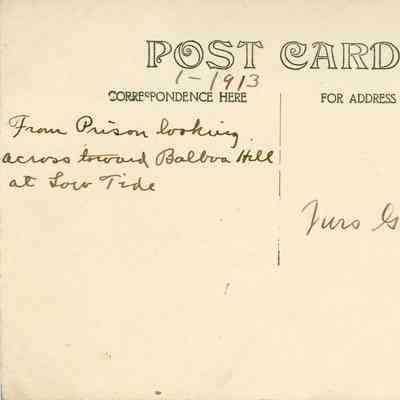 POST CARD
1-1913
CORRESPONDENCE HERE
FOR ADDRESS
From Prison looking
across toward Balboa Hill
at Low Tide
G